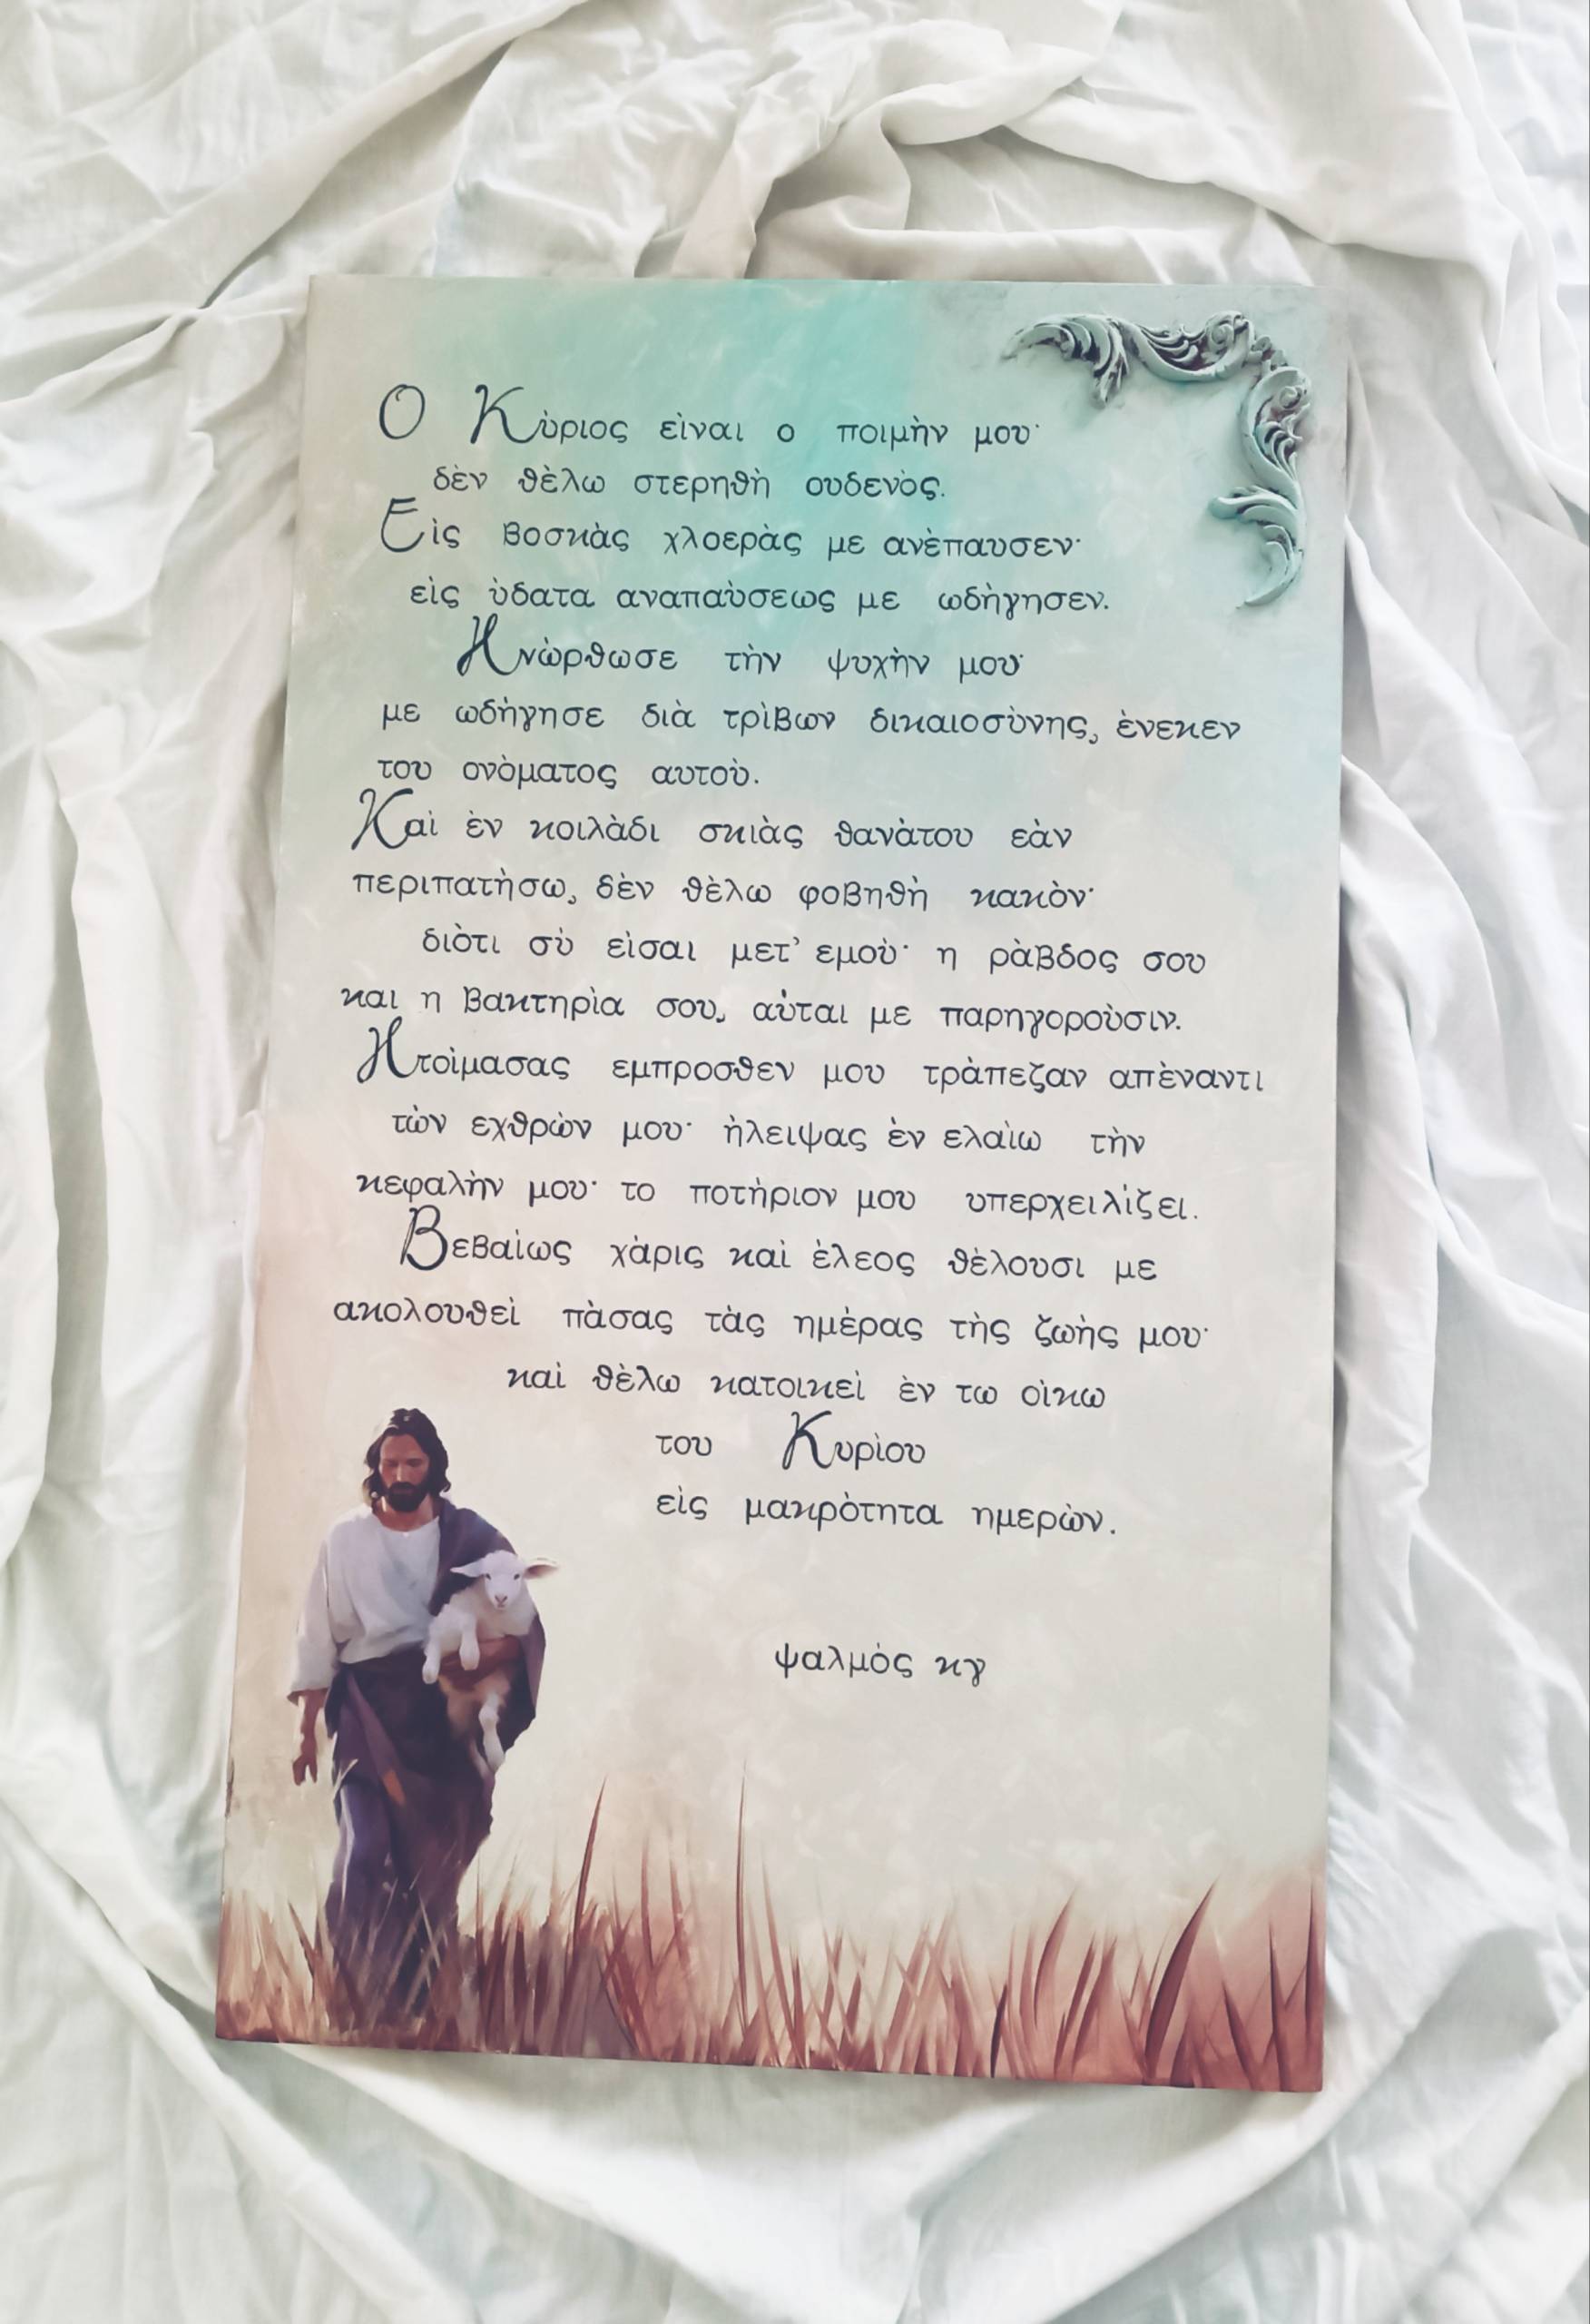 Ο Κὺριος εὶναι ο ποιμὴν μου·
δὲν θὲλω στερηθὴ ουδενὸς.
Εὶς βοσκὰς χλοερὰς με ανὲπαυσεν·
εὶς ὺδατα αναπαὺσεως με ωδὴγησεν.
Ηνὼρθωσε τὴν ψυχὴν μου·
με ωδὴγησε διὰ τρὶβων δικαιοσὺνης, ὲνεκεν
του ονὸματος αυτοὺ.
Καὶ ὲν κοιλὰδι σκιὰς θανὰτου εὰν
περιπατὴσω, δὲν θὲλω φοβηθὴ κακὸν·
διὸτι σὺ εὶσαι μετ' εμοὺ· η ρὰβδος σου
και η βακτηρὶα σου, αὺται με παρηγοροὺσιν.
Ητοὶμασας εμπροσθεν μου τρὰπεζαν απὲναντι
τὼν εχθρὼν μου· ὴλειψας ὲν ελαὶω τὴν
κεφαλὴν μου· το ποτὴριον μου υπερχειλὶζει.
Βεβαὶως χὰρις καὶ ὲλεος θὲλουσι με
ακολουθεὶ πὰσας τὰς ημὲρας τὴς ζωὴς μου·
καὶ θὲλω κατοικεὶ ὲν τω οὶκω
του Κυρὶου
εὶς μακρὸτητα ημερὼν.
ψαλμὸς κγ